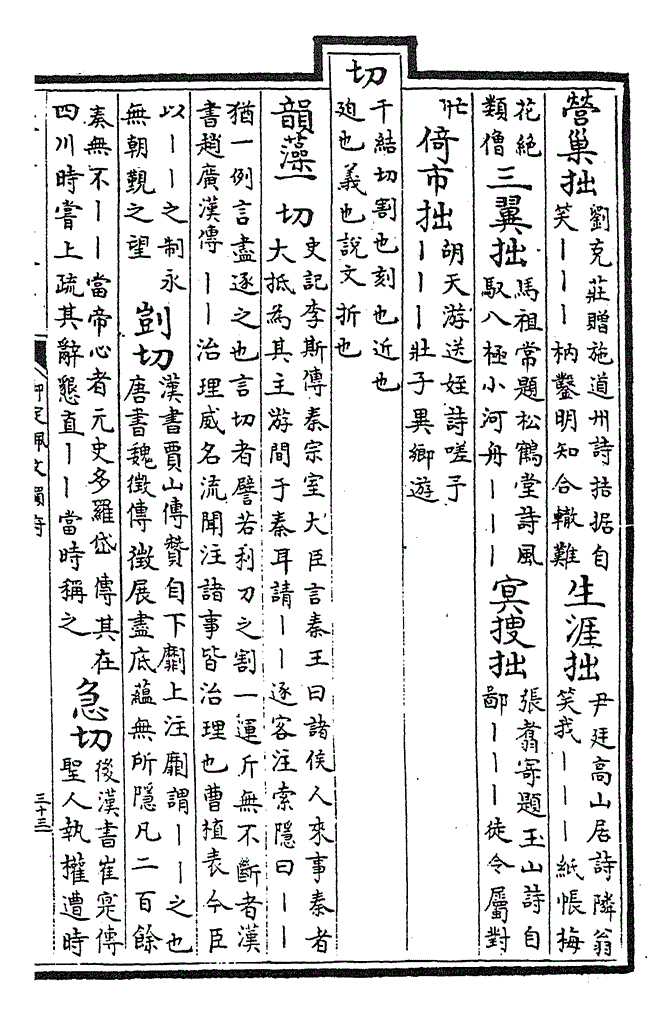 營巢拙 劉克莊贈施道州詩拮据自笑｜｜｜枘鑿明知合轍難 生涯拙 尹廷高山居詩隣翁笑我｜｜｜紙帳梅
花絶類僧 三翼拙 馬祖常題松鶴堂詩風馭八極小河舟｜｜｜ 冥搜拙 張翥寄題玉山詩自鄙｜｜｜徒令屬對
忙 倚市拙 胡天游送姪詩嗟子｜｜｜壯子異鄉遊
切 千結切割也刻也近也迫也義也說文折也
韻藻 一切 史記李斯傳秦宗室大臣言秦王曰諸侯人來事秦者大抵為其主游間于秦耳請｜｜逐客注索隱曰｜｜
猶一例言盡逐之也言切者譬若利刀之割一運斤無不斷者漢書趙廣漢傳｜｜治理威名流聞注諸事皆治理也曹植表今臣
以｜｜之制永無朝覲之望 剴切 漢書賈山傳贊自下劘上注劘謂｜｜之也唐書魏徵傳徵展盡底蘊無所隱凡二百餘
奏無不｜｜當帝心者元史多羅岱傳其在四川時嘗上疏其辭懇直｜｜當時稱之 急切 後漢書崔寔傳聖人執權遭時
御定佩文韻府
三十三